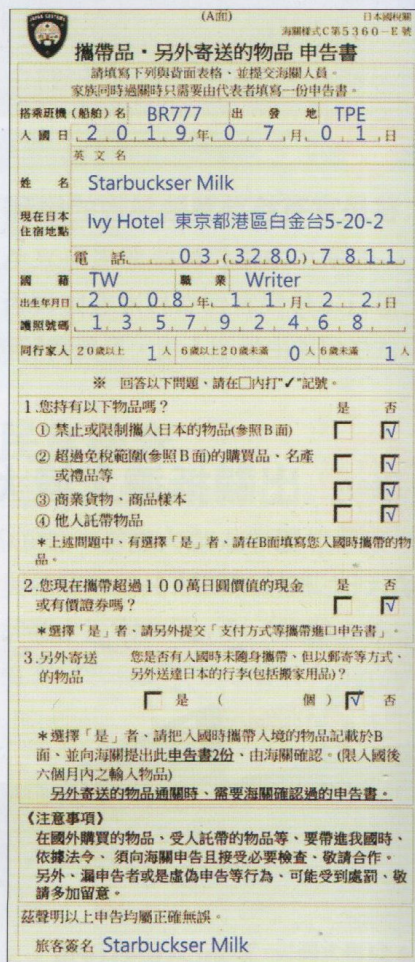 JAPAN CUSTOMS
(A面)
日本國稅關
海關樣式C第5360－E號
攜帶品・另外寄送的物品 申告書
請填寫下列與背面表格、並提交海關人員。
家族同時過關時只需要由代表者填寫一份申告書。
搭乘班機(船舶)名 BR777 出發地 TPE
入國日 2019年07月01日
英文名
姓名 Starbuckser Milk
現在日本住宿地點 Ivy Hotel 東京都港區白金台5-20-2
電話 03(3280)7811
國籍 TW 職業 Writer
出生年月日 2008年11月22日
護照號碼 135792468
同行家人 20歲以上 1人 6歲以上20歲未滿 0人 6歲未滿 1人
※ 回答以下問題、請在□內打"✓"記號。
1.您持有以下物品嗎？ 是 否
① 禁止或限制攜入日本的物品(參照B面) □ ☑
② 超過免稅範圍(參照B面)的購買品、名產 □ ☑
或禮品等
③ 商業貨物、商品樣本 □ ☑
④ 他人託帶物品 □ ☑
＊上述問題中、有選擇「是」者、請在B面填寫您入國時攜帶的物
品。
2.您現在攜帶超過100萬日圓價值的現金 是 否
或有價證券嗎？ □ ☑
＊選擇「是」者、請另外提交「支付方式等攜帶進口申告書」。
3.另外寄送 您是否有入國時未隨身攜帶、但以郵寄等方式、
的物品 另外送達日本的行李(包括搬家用品)？
□ 是 ( 個 ) ☑ 否
＊選擇「是」者、請把入國時攜帶入境的物品記載於B
面、並向海關提出此申告書2份、由海關確認。(限入國後
六個月內之輸入物品)
另外寄送的物品通關時、需要海關確認過的申告書。
《注意事項》
在國外購買的物品、受人託帶的物品等、要帶進我國時、
依據法令、須向海關申告且接受必要檢查、敬請合作。
另外、漏申告者或是虛偽申告等行為、可能受到處罰、敬
請多加留意。
茲聲明以上申告均屬正確無誤。
旅客簽名 Starbuckser Milk